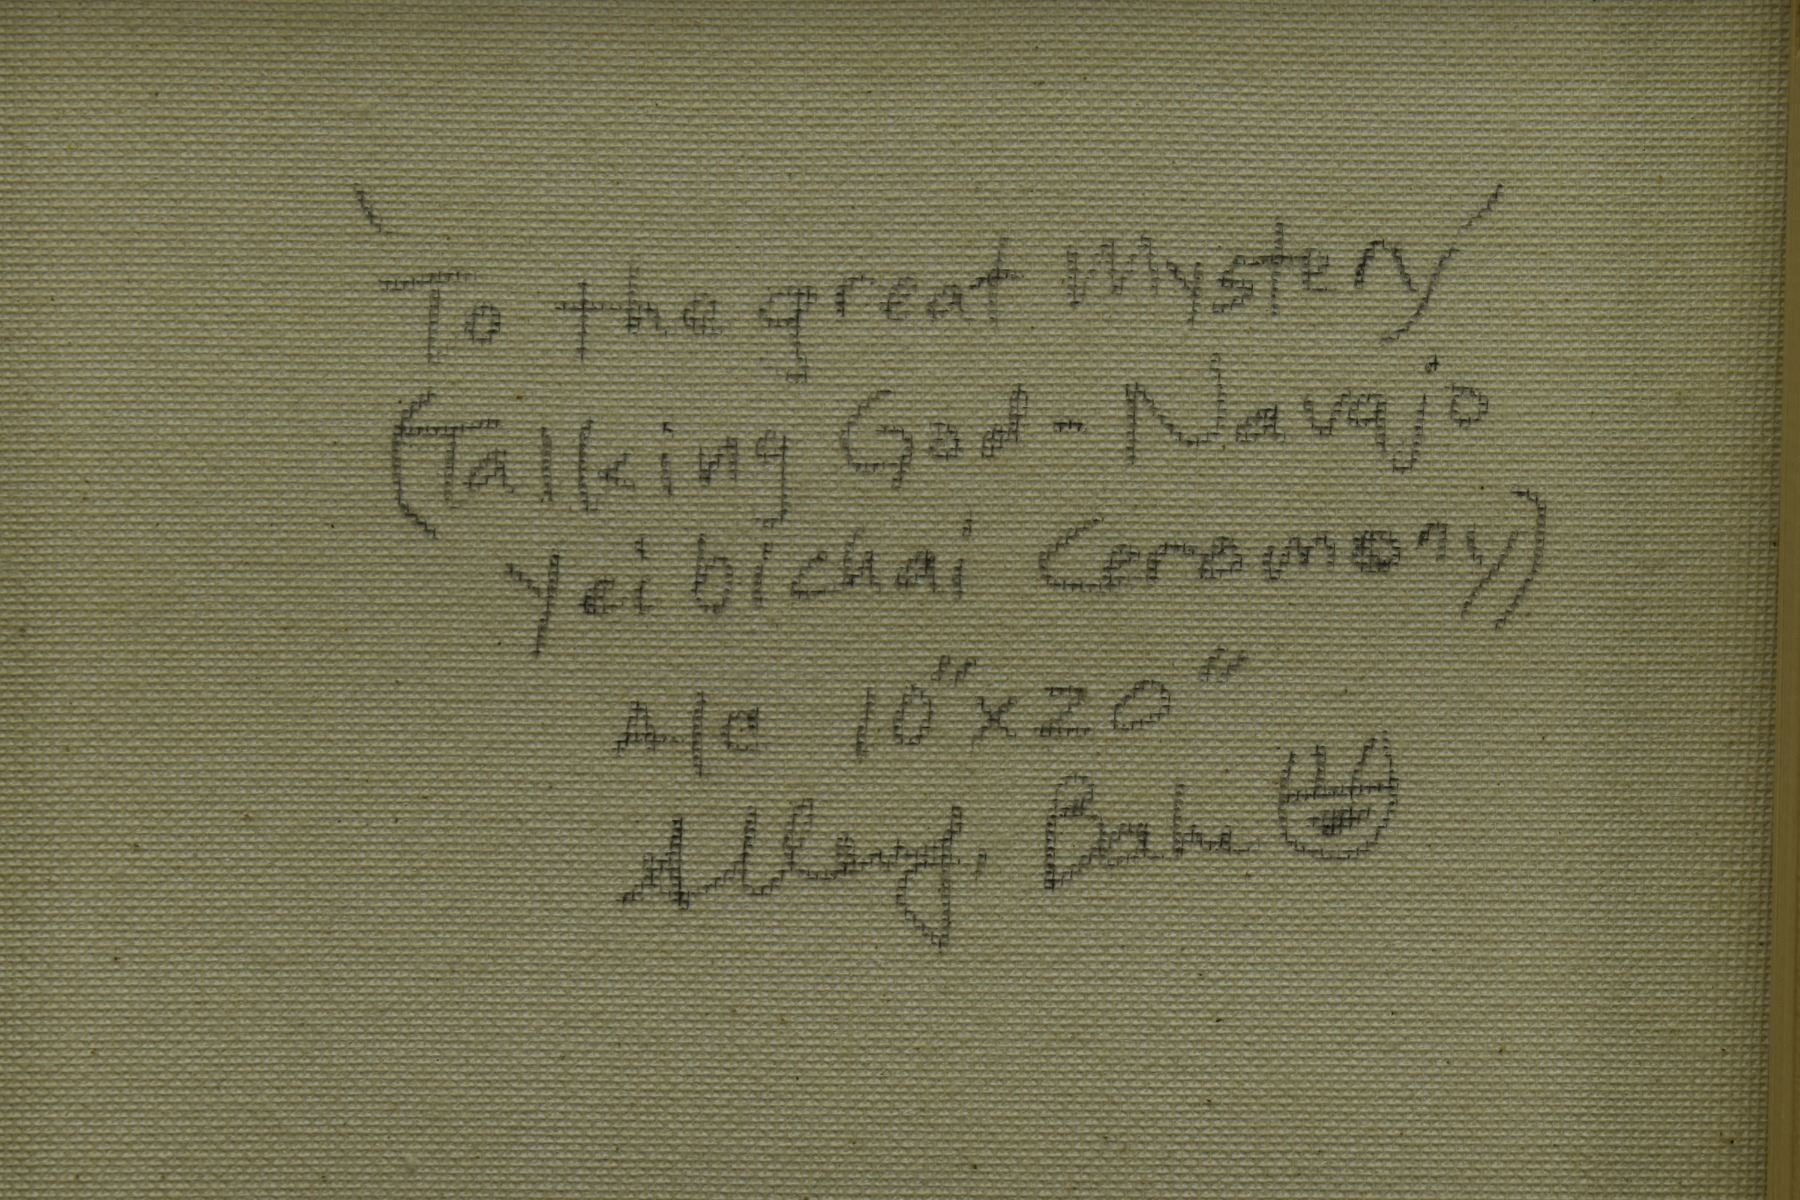 "To the great Mystery
(Talking God - Navajo
Yeibichai Ceremony)
A/C 10" x 20"